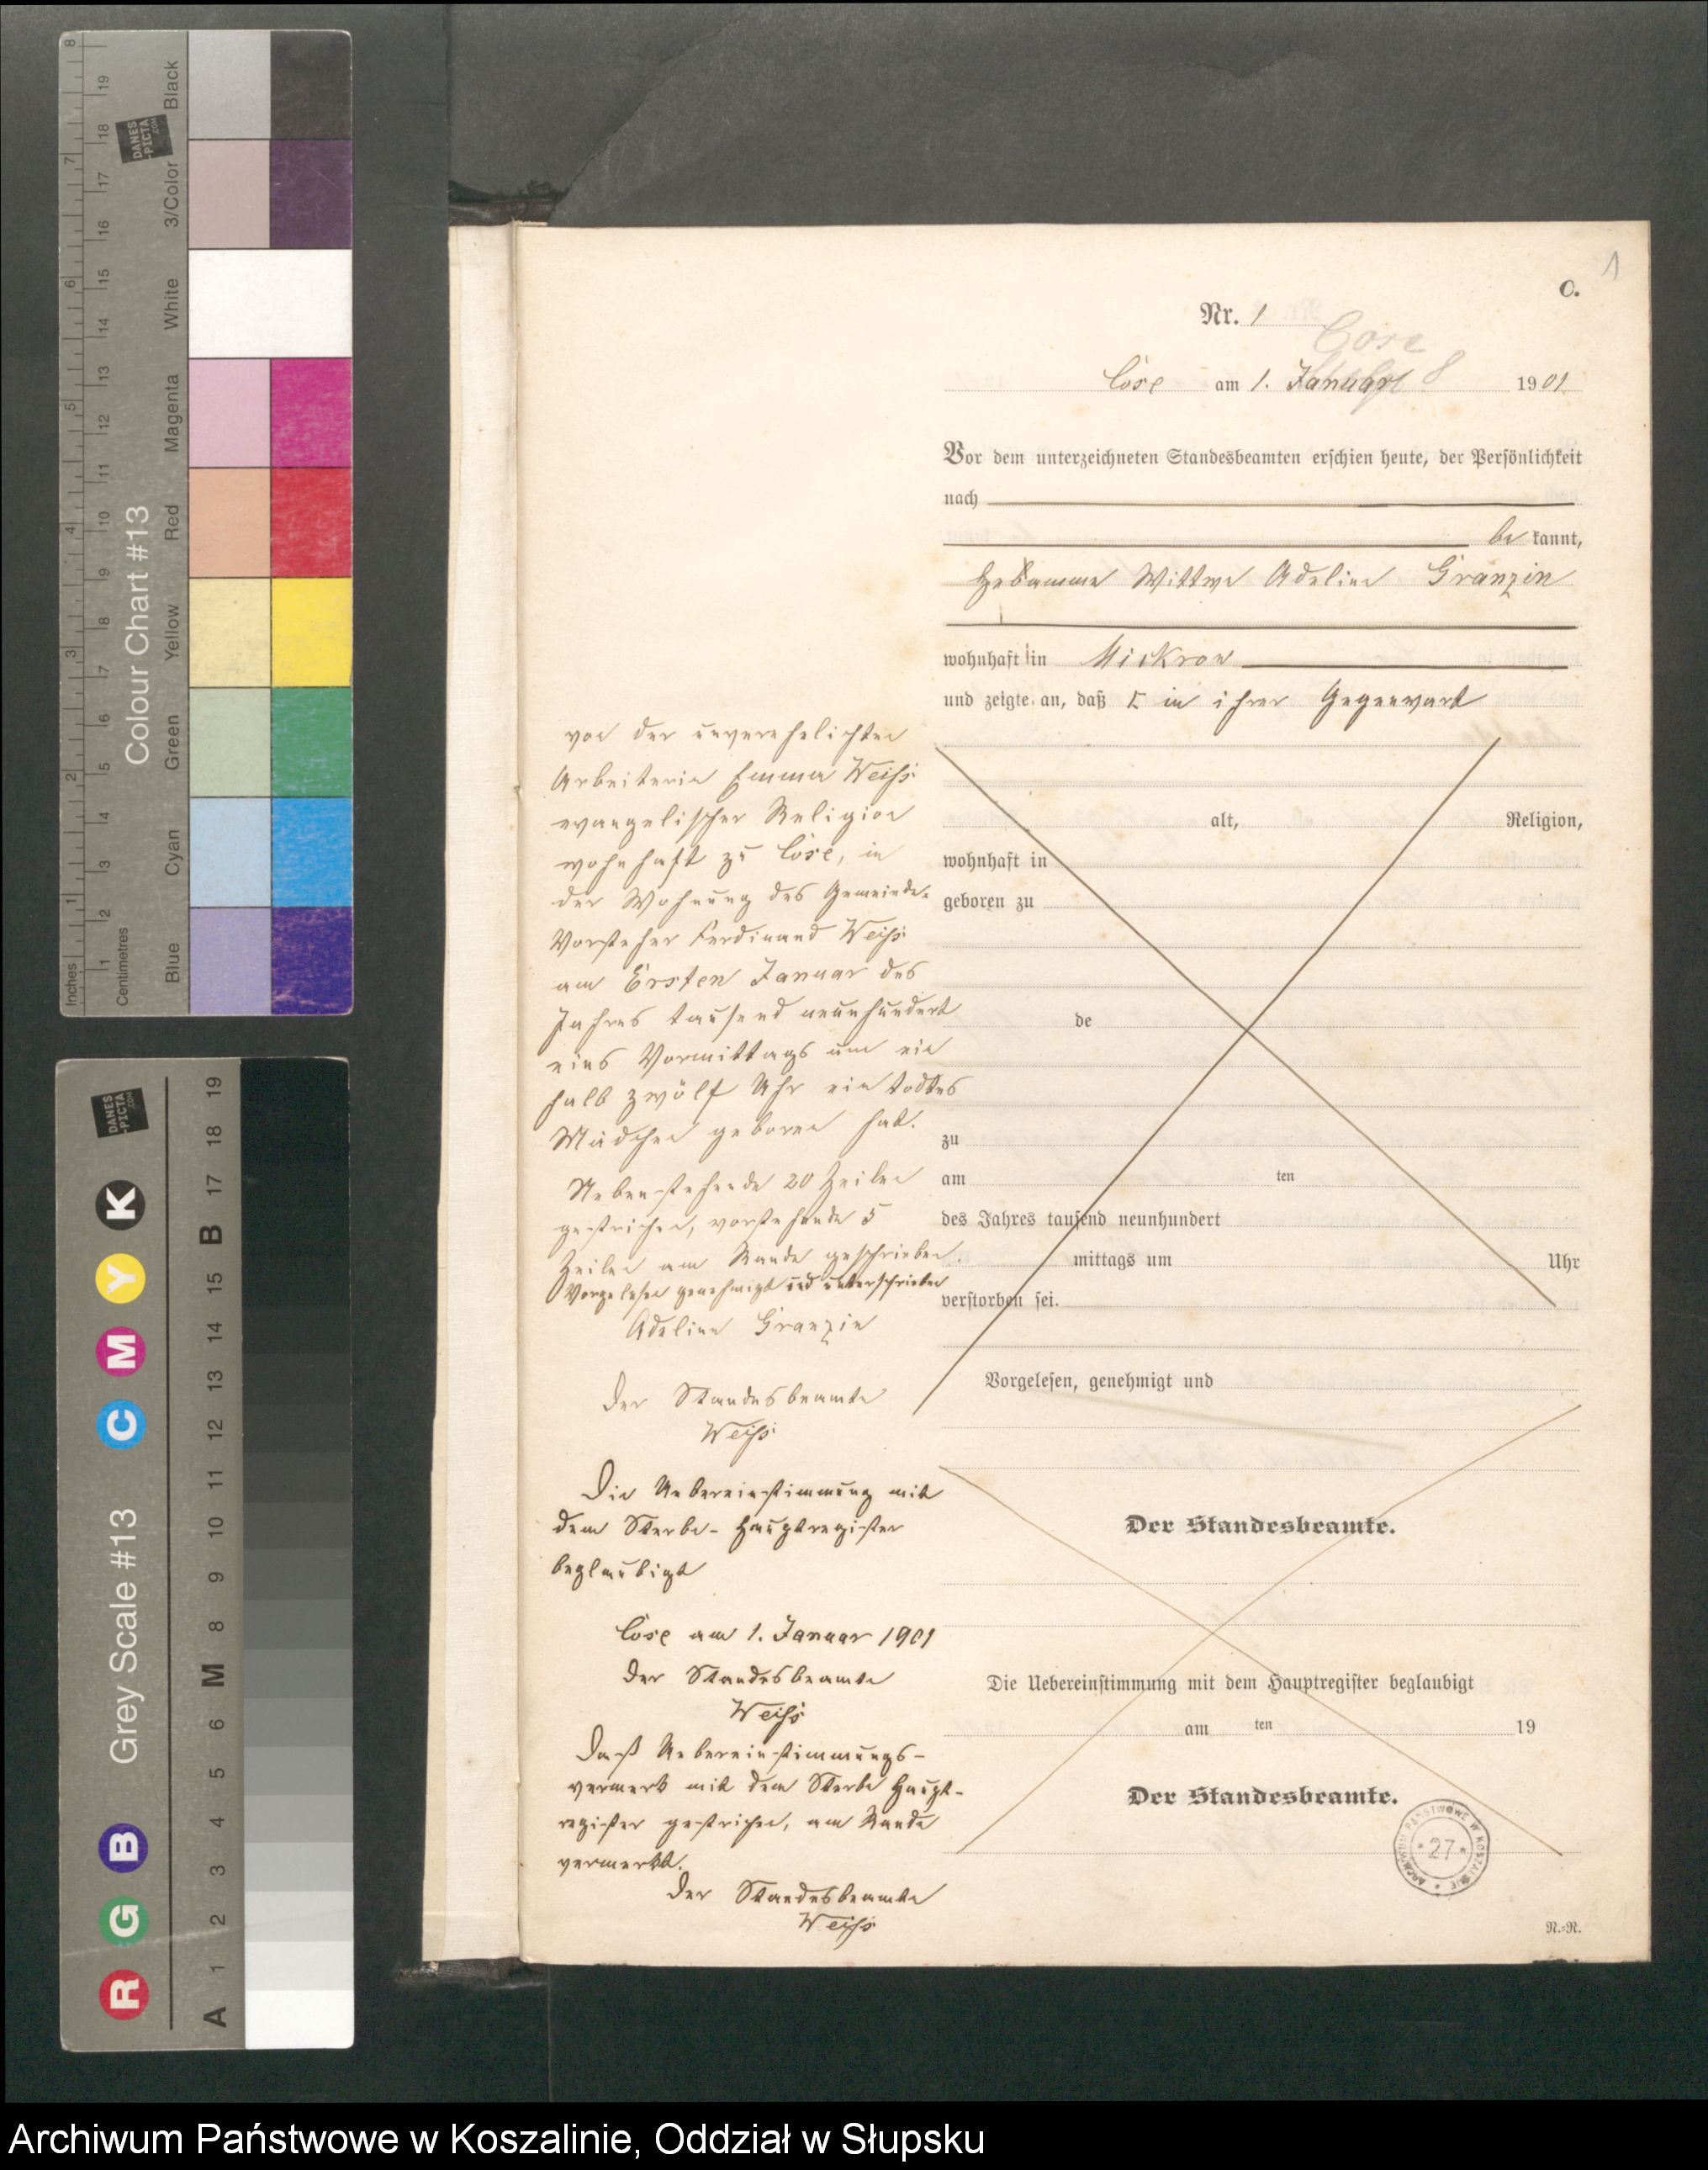 8
7
6
5
4
3
2
1
Inches
19
18
17
16
15
14
13
12
11
10
9
8
7
6
5
4
3
2
1
Centimetres
Colour Chart #13
Black
3/Color
White
Magenta
Red
Yellow
Green
Cyan
Blue
DANES
-PICTA
.COM
DANES
-PICTA
.COM
Grey Scale #13
K
Y
M
C
B
G
R
19
18
17
B
15
14
13
12
11
10
9
8
M
6
5
4
3
2
1
A
1
C.
Nr. 1
Cose
Cose am 1. Januar 1901
Vor dem unterzeichneten Standesbeamten erschien heute, der Persönlichkeit
nach
be kannt,
Hebamme Wittwe Adeline Granzin
wohnhaft in Mickrow
und zeigte an, daß in ihrer Gegenwart
von der unverehelichten
Arbeiterin Emma Weiß
evangelischer Religion
wohnhaft zu Cose, in
der Wohnung des Gemeinde-
Vorsteher Ferdinand Weiß
am Ersten Januar des
Jahres tausend neunhundert
eins Vormittags um ein
halb zwölf Uhr ein todtes
Mädchen geboren hat.
Nebenstehende 20 Zeilen
gestrichen, vorstehende 5
Zeilen am Rande geschrieben.
Vorgelesen genehmigt und unterschrieben
Adeline Granzin
Der Standesbeamte
Weiß
Die Uebereinstimmung mit
dem Sterbe-Hauptregister
beglaubigt
Cose am 1. Januar 1901
Der Standesbeamte
Weiß
Daß Uebereinstimmungs-
vermerk mit dem Sterbe Haupt-
register gestrichen, am Rande
vermerkt.
Der Standesbeamte
Weiß
alt, Religion,
wohnhaft in
geboren zu
de
zu
am ten
des Jahres tausend neunhundert
mittags um Uhr
verstorben sei.
Vorgelesen, genehmigt und
Der Standesbeamte.
Die Uebereinstimmung mit dem Hauptregister beglaubigt
am ten 19
Der Standesbeamte.
ARCHIWUM PAŃSTWOWE W KOSZALINIE
* 27 *
N.=N.
Archiwum Państwowe w Koszalinie, Oddział w Słupsku